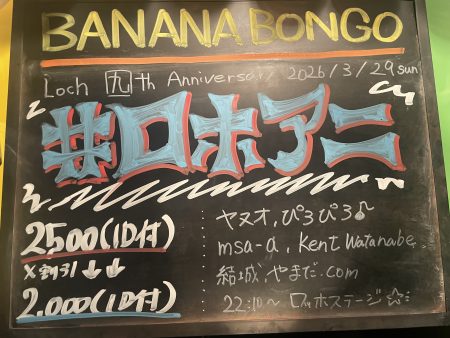 BANANA BONGO
Loch 九th Anniversary 2026/3/29 sun
#ロホアニ
2,500(1D付)
X割引↓↓
2,000(1D付)
ヤヌオ,ぴろぴろ♪
msa-a, Kent Watanabe,
結城,やまだ.com
22:10〜 ロッホステージ☆彡